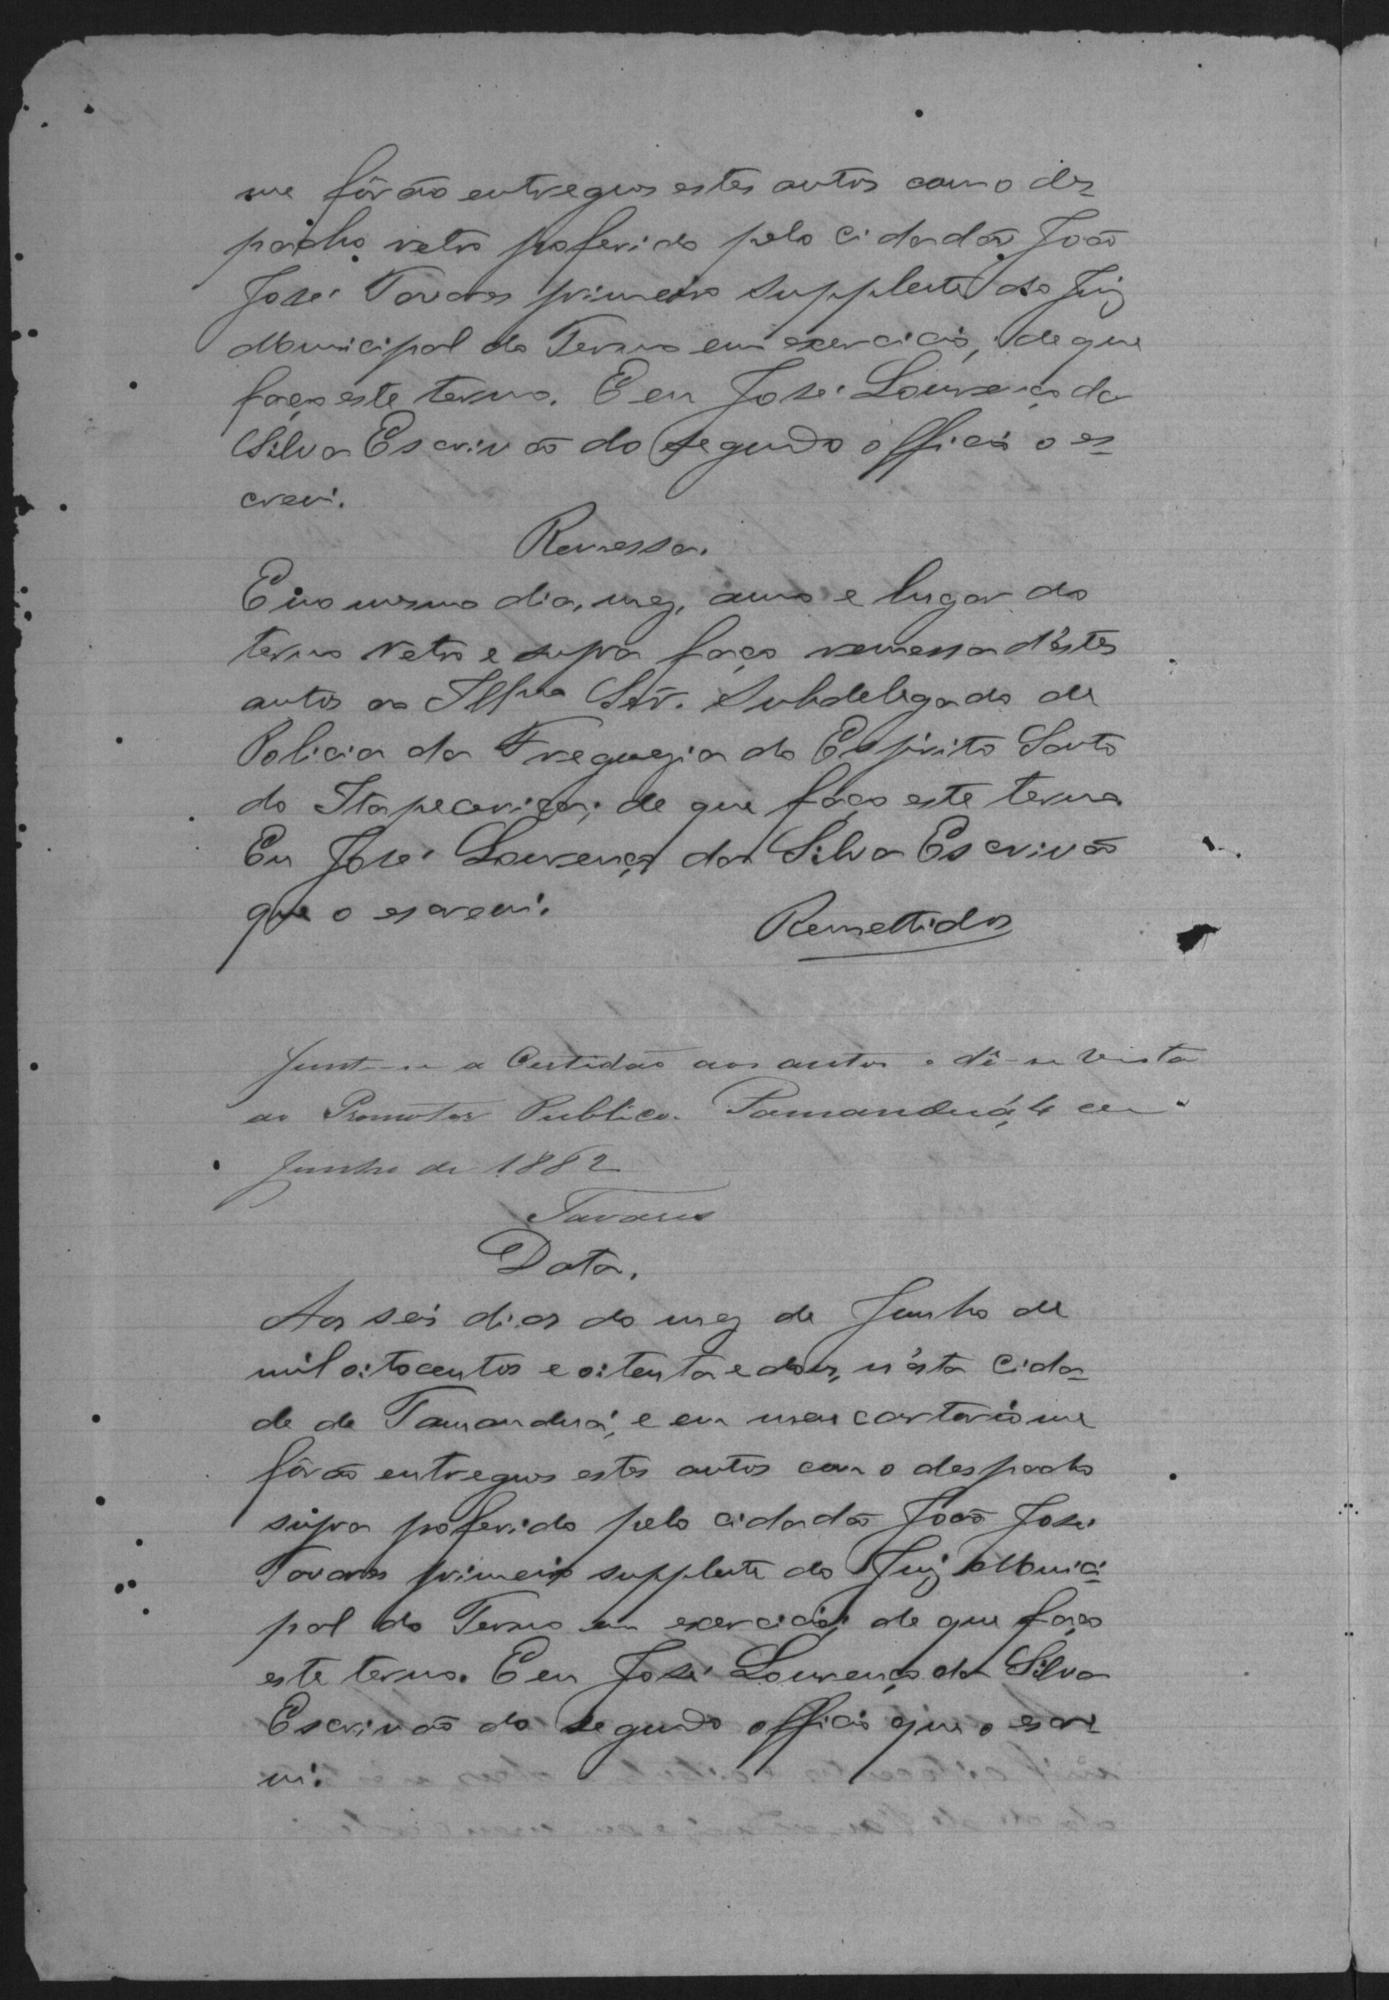 me fôrão entregues estes autos com o des=
pacho retro proferido pelo cidadão João
José Tavares primeiro supplente do Juiz
Municipal do Termo em exercicio; de que
faço este termo. E eu José Lourenço da
Silva Escrivão do segundo officio o es=
crevi.
Remessa.
E no mesmo dia, mez, anno e lugar do
termo retro e supra faço remessa d'estes
autos ao Illmo Snr. Subdelegado de
Policia da Freguezia do Espirito Santo
do Itapecerica; de que faço este termo
Eu José Lourenço da Silva Escrivão
que o escrevi.
Remettidos
Junte-se a Certidão aos autos e dê-se vista
ao Promotor Publico. Tamanduá, 4 de
Junho de 1882
Tavares
Data.
Aos seis dias do mez de Junho de
mil oitocentos e oitenta e dous, n'ésta Cida=
de de Tamanduá, e em meu cartorio me
fôrão entregues estes autos com o despacho
supra proferido pelo cidadão João José
Tavares primeiro supplente do Juiz Munici=
pal do Termo em exercicio; de que faço
este termo. E eu José Lourenço da Silva
Escrivão do segundo officio que o escre
vi.